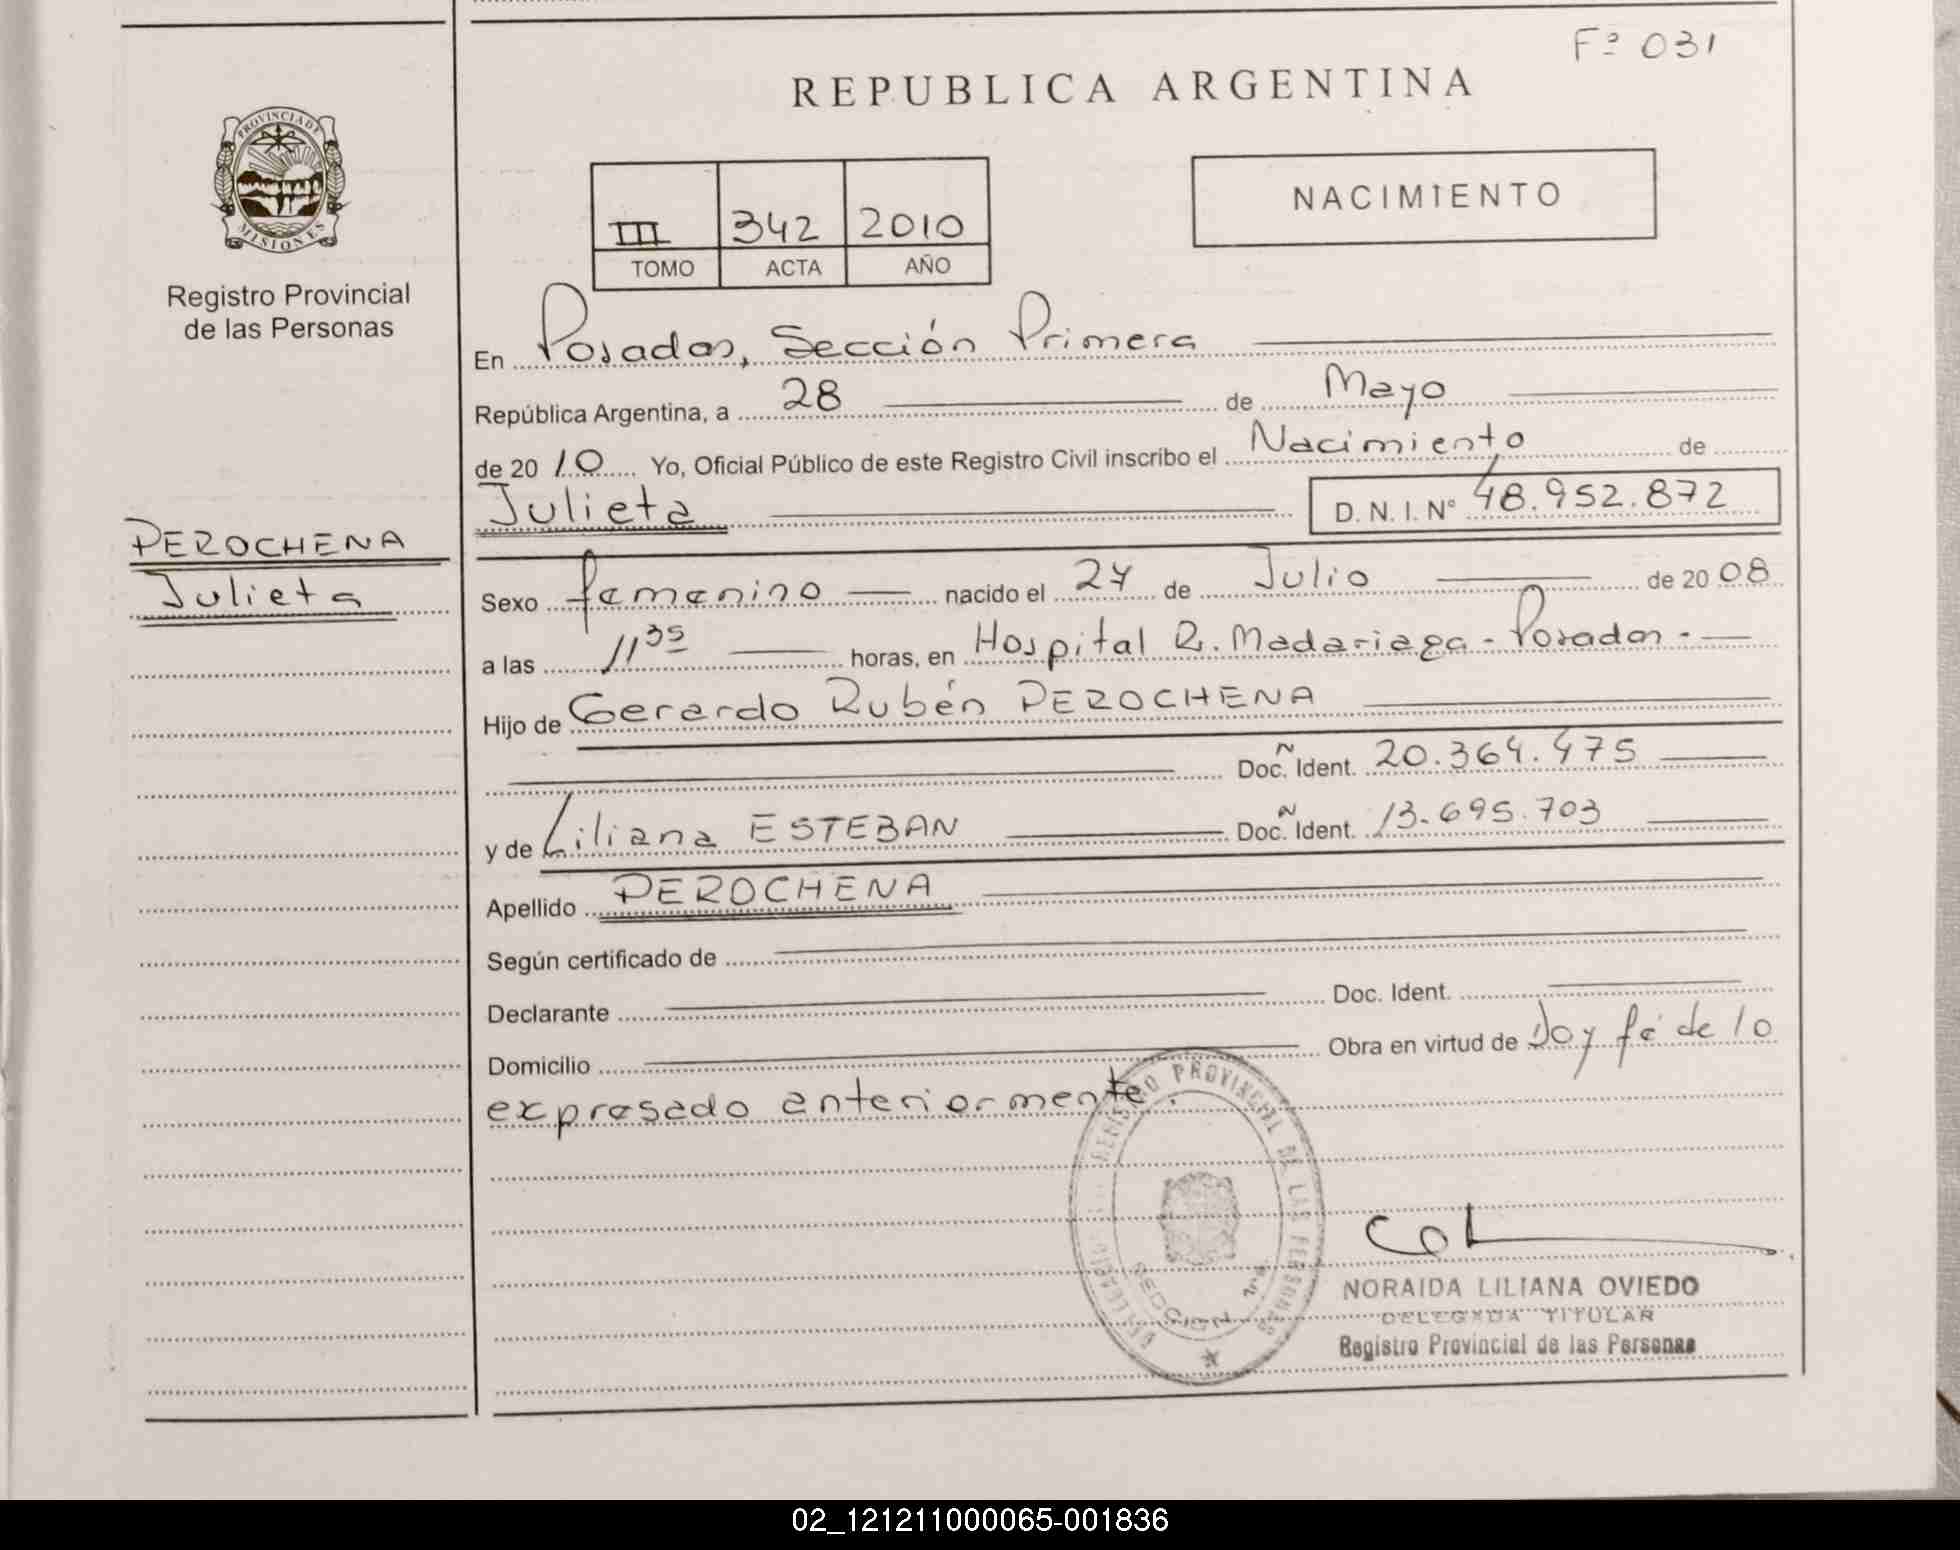 Fº 031
REPUBLICA ARGENTINA
PROVINCIA DE
MISIONES
Registro Provincial
de las Personas
III 342 2010
TOMO ACTA AÑO
NACIMIENTO
En Posadas, Sección Primera
República Argentina, a 28 de Mayo
de 20 10 Yo, Oficial Público de este Registro Civil inscribo el Nacimiento de
Julieta D. N. I. Nº 48.952.872
PEROCHENA
Julieta
Sexo femenino nacido el 24 de Julio de 20 08
a las 11 35 horas, en Hospital R. Madariaga - Posadas -
Hijo de Gerardo Rubén PEROCHENA
Doc. Ident. 20.364.475
y de Liliana ESTEBAN Doc. Ident. 13.695.703
Apellido PEROCHENA
Según certificado de
Declarante Doc. Ident.
Domicilio Obra en virtud de Doy fé de lo
expresado anteriormente.
REGISTRO PROVINCIAL DE LAS PERSONAS
SECCION 1ra
NORAIDA LILIANA OVIEDO
DELEGADA TITULAR
Registro Provincial de las Personas
02_121211000065-001836